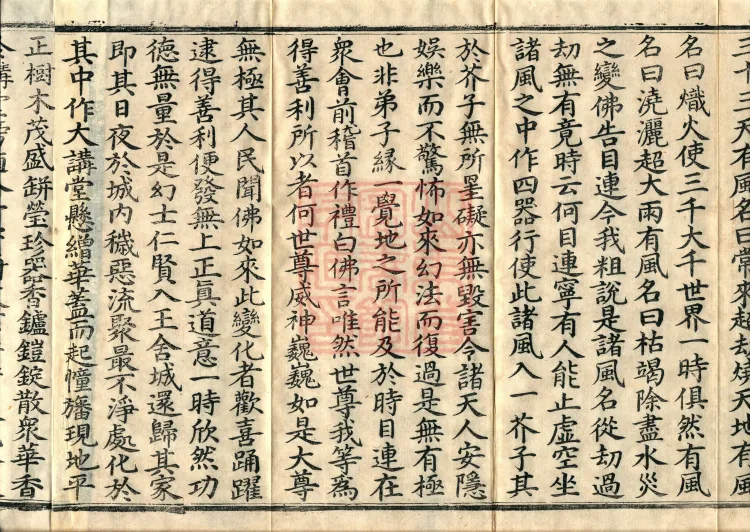 三十三天有風名曰常來起去燒天地有風
名曰熾火使三千大千世界一時俱然有風
名曰澆灑超大雨有風名曰枯竭除盡水災
之變佛告目連今我粗說是諸風名從劫過
劫無有竟時云何目連寧有人能止虛空坐
諸風之中作四器行使此諸風入一芥子其
於芥子無所罣礙亦無毀害令諸天人安隱
娛樂而不驚怖如來幻法而復過是無有極
也非弟子緣一覺地之所能及於時目連在
衆會前稽首作禮白佛言唯然世尊我等爲
得善利所以者何世尊威神巍巍如是大尊
無極其人民聞佛如來此變化者歡喜踊躍
逮得善利便發無上正眞道意一時欣然功
德無量於是幻士仁賢入王舍城還歸其家
即其日夜於城內穢惡流聚最不淨處化於
其中作大講堂懸繒華蓋而起幢旛現地平
正樹木茂盛缾瑩珍器香鑪鎧錠散衆華香